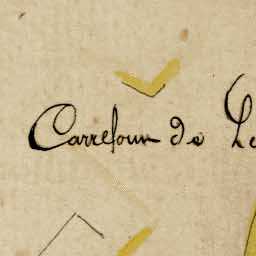 Carrefour de